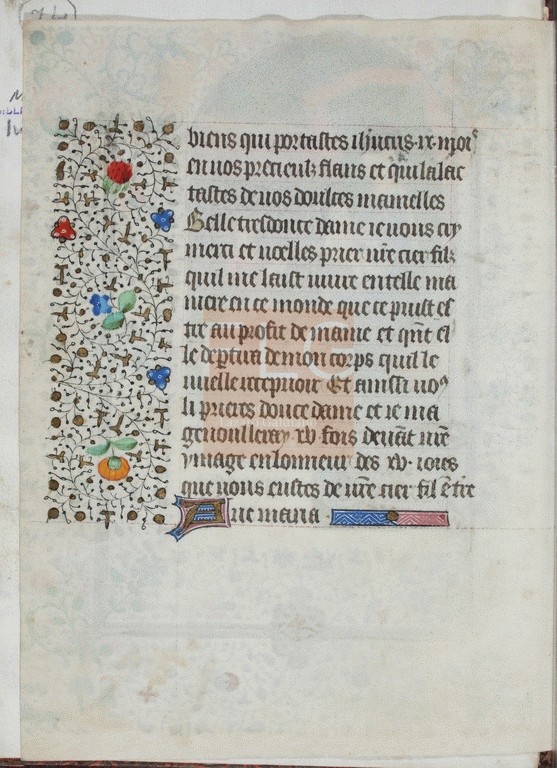 biens qui portastes ihucris .ix. mois
en uos precieulz flans et qui lalac
tastes de uos doulces mamelles
Belle tresdouce dame ie uous cry
merci et uoelles prier nr̄e cier filz
quil me laist uiure en telle ma
niere en ce monde que ce puist es
tre au profit de mame et qn̄t el
le deptira de mon corps quil le
uuelle recepuoir Et ainsi uoꝰ
li prieres douce dame et ie ma
genoulleray .xv. fois deuāt nr̄e
ymage en lonneur des .xv. ioies
que uous eustes de nr̄e cier fil ē tre
Aue maria